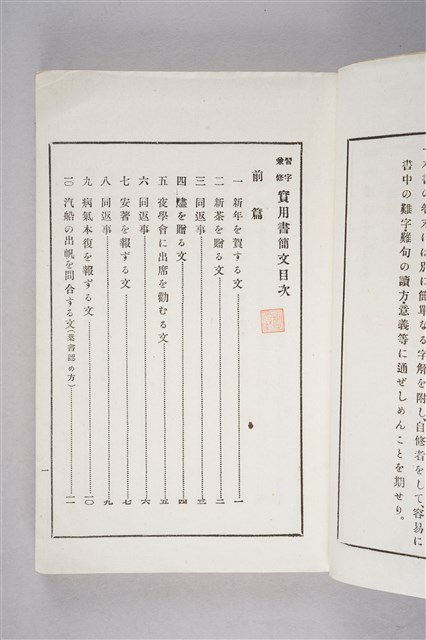 一本書の卷末には別に簡單なる字解を附し、自修者をして、容易に
書中の難字難句の讀方・意義等に通ぜしめんことを期せり。
習字兼修 實用書簡文目次
前篇
一 新年を賀する文……一
二 新茶を贈る文……二
三 同返事……三
四 を贈る文……四
五 夜學會に出席を勸むる文……五
六 同返事……六
七 安著を報ずる文……七
八 同返事……九
九 病氣本復を報ずる文……一〇
一〇 汽船の出帆を問合する文(葉書認め方)……一一
一